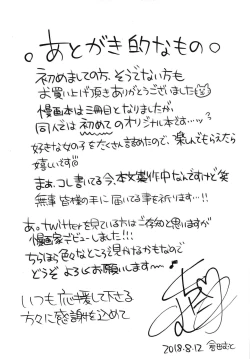 ○あとがき的なもの○
初めましての方、そうでない方も
お買い上げ頂きありがとうございました
漫画本は三冊目となりましたが、
同人では初めてのオリジナル本です…ッ?
好きな女の子をたくさん詰めたので、楽しんでもらえたら
嬉しいです
まぁ、コレ書いてる今、本文製作中なんですけど笑
無事皆様の手に届いてる事を祈ります…!!
あ。twitterを見ている方はご存知と思いますが
漫画家デビューしました!!!
ちらほら色々なところで見かけるかもなので
どうぞよろしくお願いします〜♪
いつも応援して下さる
方々に感謝を込めて
2018.8.12